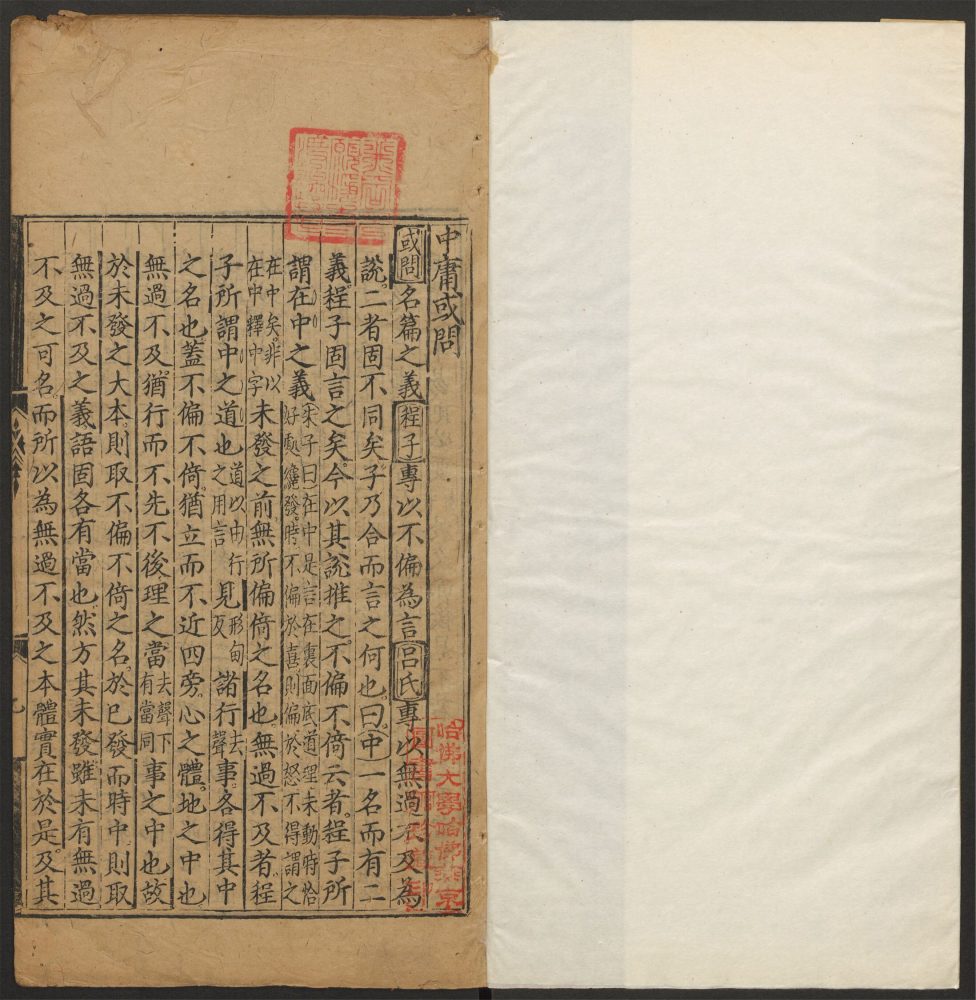 中庸或問
或問名篇之義程子專以不偏為言呂氏專以無過不及為
說二者固不同矣子乃合而言之何也曰中一名而有二
義程子固言之矣今以其說推之不偏不倚云者程子所
謂在中之義朱子曰在中是言在裏面底道理未動時恰好處纔發時不偏於喜則偏於怒不得謂之
在中矣非以在中釋中字未發之前無所偏倚之名也無過不及者程
子所謂中之道也道以由行之用言見形甸反諸行去聲事各得其中
之名也蓋不偏不倚猶立而不近四旁心之體地之中也
無過不及猶行而不先不後理之當去聲下有當同事之中也故
於未發之大本則取不偏不倚之名於已發而時中則取
無過不及之義語固各有當也然方其未發雖未有無過
不及之可名而所以為無過不及之本體實在於是及其
哈佛大學哈佛燕京
圖書館珍藏印